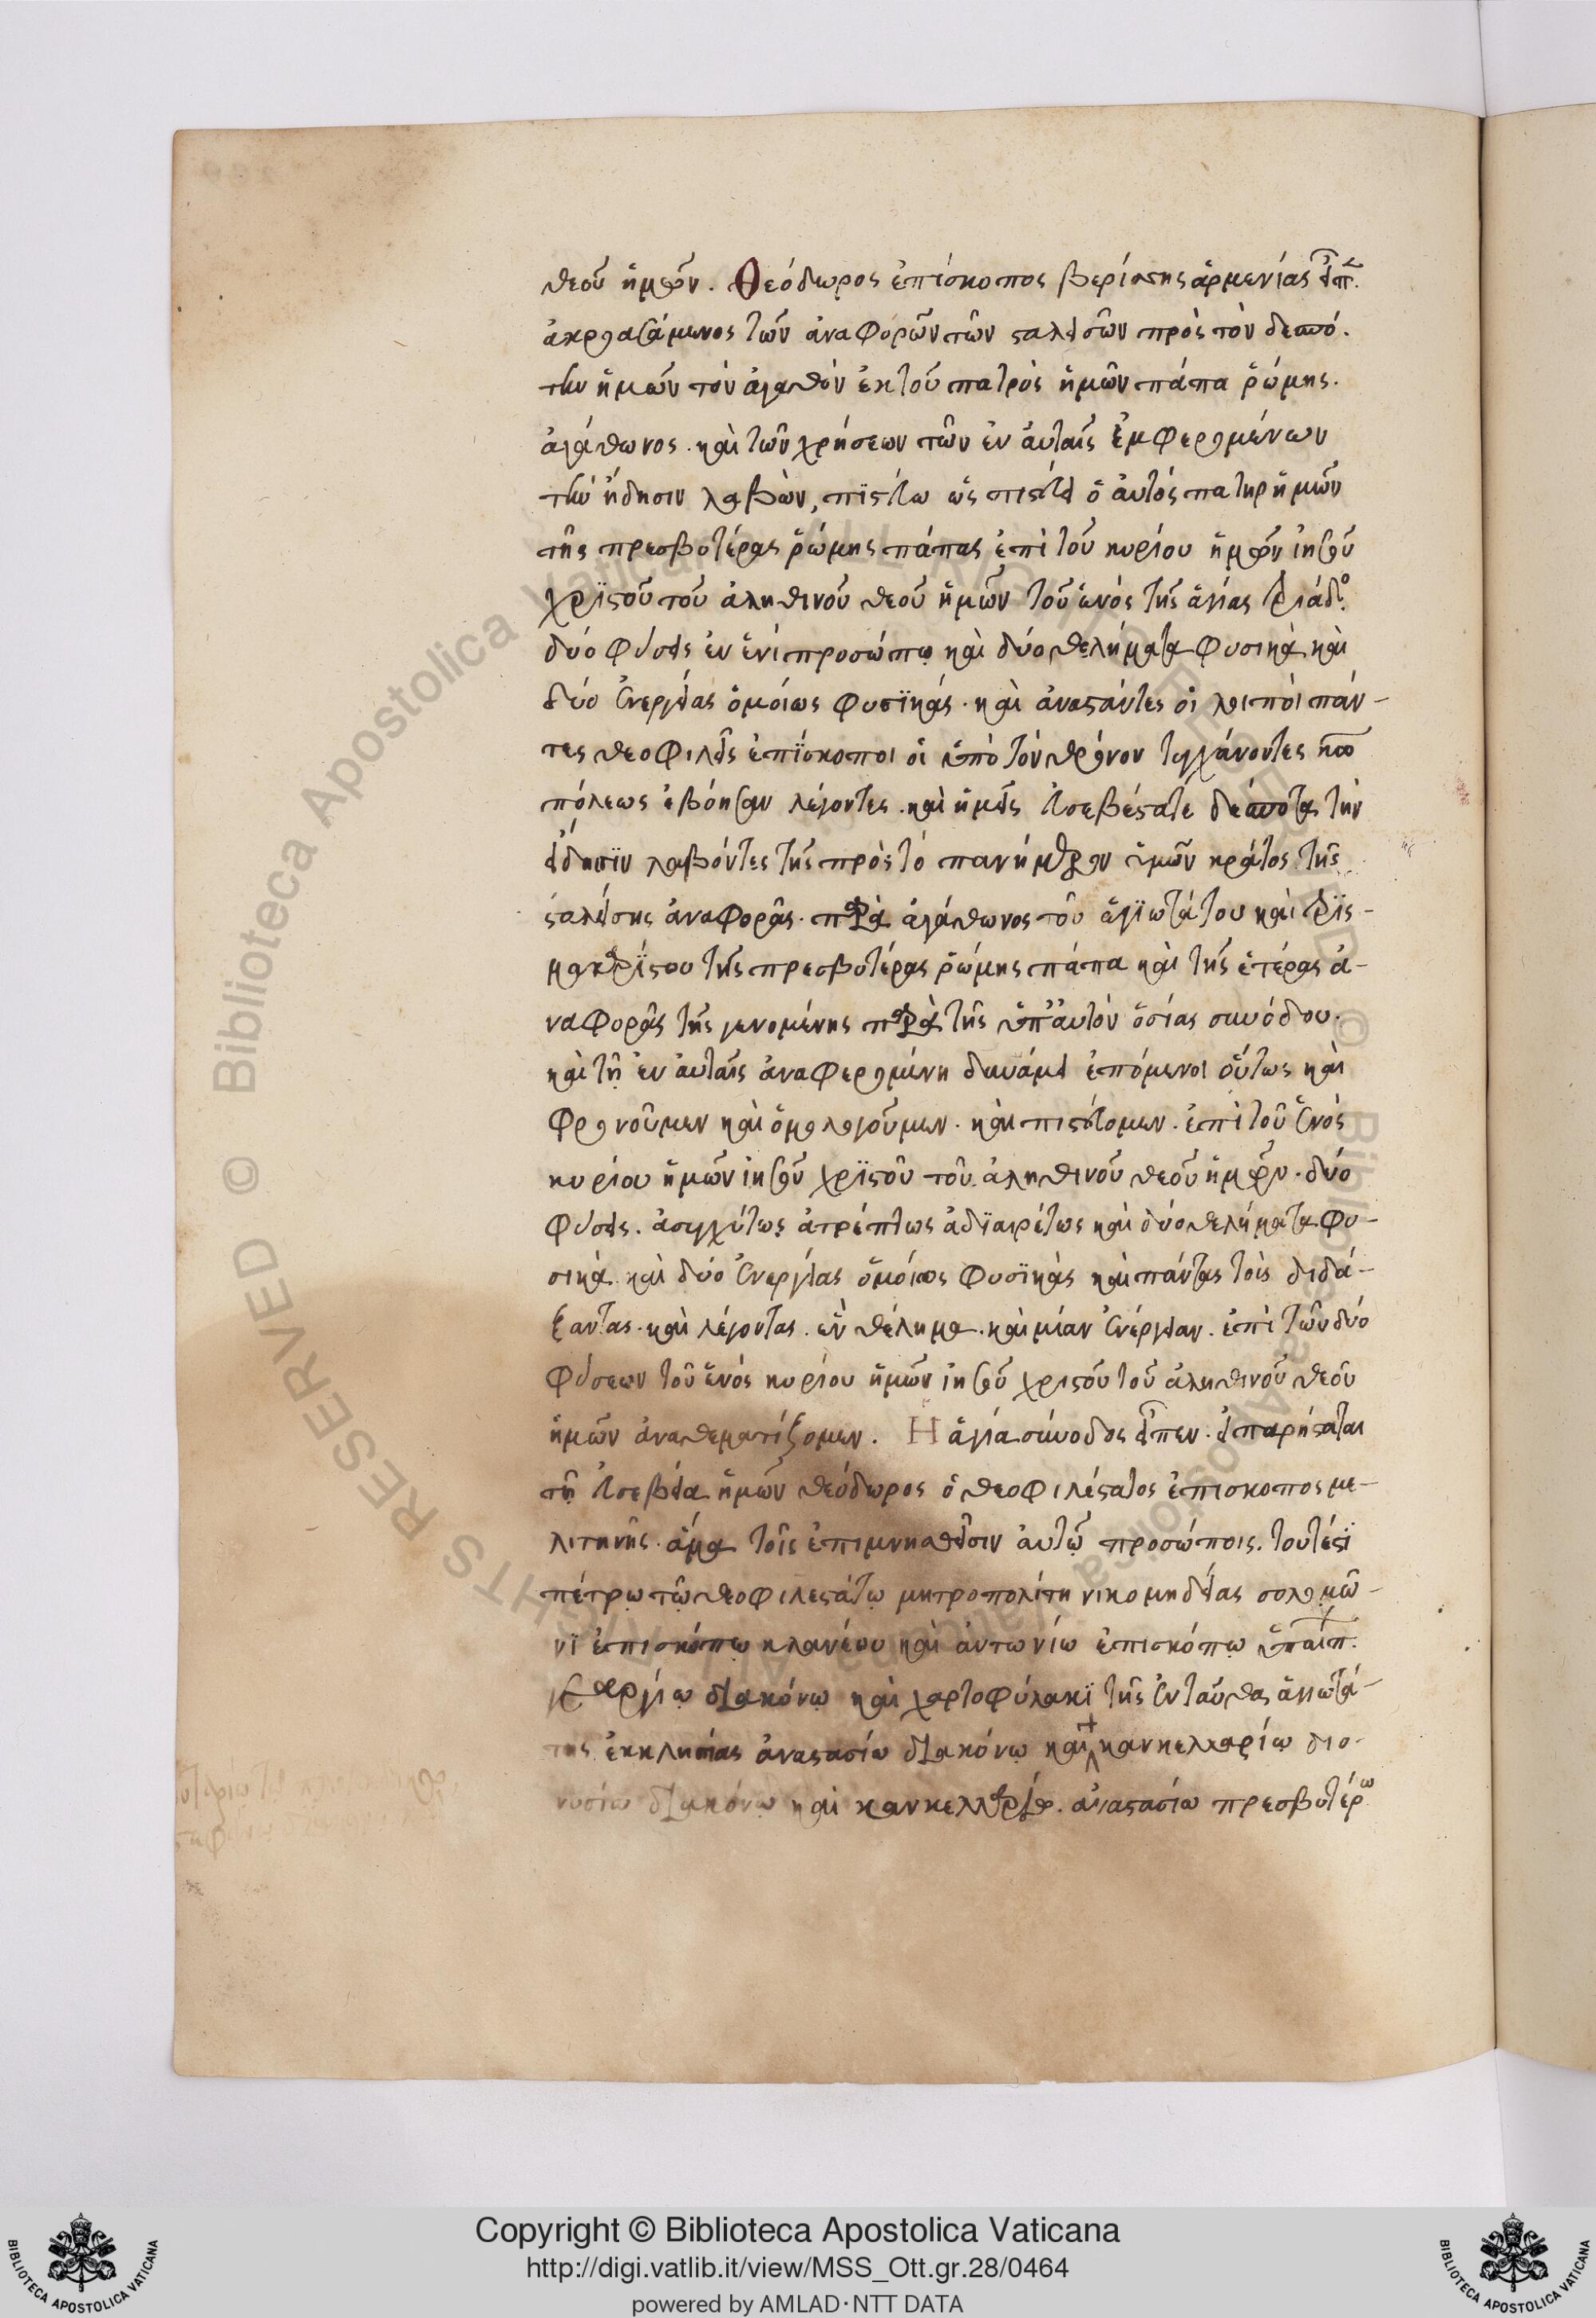 θεοῦ ἡμῶν. Θεόδωρος ἐπίσκοπος βερίσσης ἀρμενίας εἶπ.
ἀκροασάμενος τῶν ἀναφορῶν τῶν σταλεισῶν πρὸς τὸν δεσπό.
την ἡμῶν τὸν ἀγαθὸν ἐκ τοῦ πατρὸς ἡμῶν πάπα ῥώμης.
ἀγάθωνος. καὶ τῶν χρήσεων τῶν ἐν αὐταῖς ἐμφερομένων
τὴν ἤδησιν λαβὼν, πϊστεύω ὡς πιστεύει ὁ αὐτὸς πατὴρ ἡμῶν
τῆς πρεσβυτέρας ῥώμης πάπας ἐπὶ τοῦ κυρίου ἡμῶν ἰησοῦ
χρϊστοῦ τοῦ ἀληθινοῦ θεοῦ ἡμῶν τοῦ ἑνὸς τῆς ἁγίας τριάδο
δύο φύσεις ἐν ἑνὶ προσώπῳ καὶ δύο θελήματα φυσικὰ καὶ
δύο ἐνεργείας ὁμοίως φυσϊκάς. καὶ ἀναστάντες οἱ λοιποὶ πάν-
τες θεοφιλεῖς ἐπΐσκοποι οἱ ὑπὸ τὸν θρόνον τυγχάνοντες κω
πόλεως ἐβόησαν λέγοντες. καὶ ἡμεῖς εὐσεβέστατε δέσποτα τὴν
εἴδησϊν λαβόντες τῆς πρὸς τὸ πανήμερον ὑμῶν κράτος. τῆς
σταλείσης ἀναφορᾶς. παρὰ ἀγάθωνος τοῦ ἁγϊωτάτου καὶ τρϊς-
μακαρΐστου τῆς πρεσβυτέρας ῥώμης πάπα καὶ τῆς ἑτέρας ἀ-
ναφορᾶς τῆς γενομένης παρὰ τῆς ὑπ' αὐτὸν ὁσίας συνόδου.
καὶ τῇ ἐν αὐταῖς ἀναφερομένη δυνάμει ἑπόμενοι οὕτως καὶ
φρονοῦμεν καὶ ὁμολογοῦμεν. καὶ πιστεύομεν. ἐπὶ τοῦ ἑνὸς
κυρίου ἡμῶν ἰησοῦ χρϊστοῦ τοῦ ἀληθινοῦ θεοῦ ἡμῶν. δύο
φύσεις. ἀσυγχύτως ἀτρέπτως ἀδϊαιρέτως καὶ δύο θελήματα φυ-
σικὰ. καὶ δύο ἐνεργείας ὁμοίως φυσϊκὰς καὶ πάντας τοὺς διδά-
ξαντας. καὶ λέγοντας. ἓν θέλημα. καὶ μίαν ἐνέργειαν. ἐπὶ τῶν δύο
φύσεων τοῦ ἑνὸς κυρίου ἡμῶν ἰησοῦ χριστοῦ τοῦ ἀληθινοῦ θεοῦ
ἡμῶν ἀναθεματίζομεν. Η ἁγία σύνοδος εἶπεν. εἰ παρήσταται
τῇ εὐσεβεία ἡμῶν θεόδωρος ὁ θεοφιλέστατος ἐπίσκοπος με-
λιτηνῆς. ἅμα τοῖς ἐπιμνησθεῖσιν αὐτῷ προσώποις. τουτέστϊ
πέτρῳ τῷ θεοφιλεστάτῳ μητροπολίτη νικομηδείας σολομῶ-
νϊ ἐπισκόπῳ κλανέου καὶ ἀντωνίω ἐπισκόπῳ ὑπαίπ.
γεωργίῳ διακόνῳ καὶ χαρτοφύλακϊ τῆς ἐνταῦθα ἁγιωτά-
της ἐκκλησίας ἀναστασίω διακόνῳ καὶ κανκελλαρίῳ διο-
νυσίω διακόνῳ καὶ κανκελλαρίῳ. ἀναστασίω πρεσβυτέρω
Copyright © Biblioteca Apostolica Vaticana
http://digi.vatlib.it/view/MSS_Ott.gr.28/0464
powered by AMLAD·NTT DATA